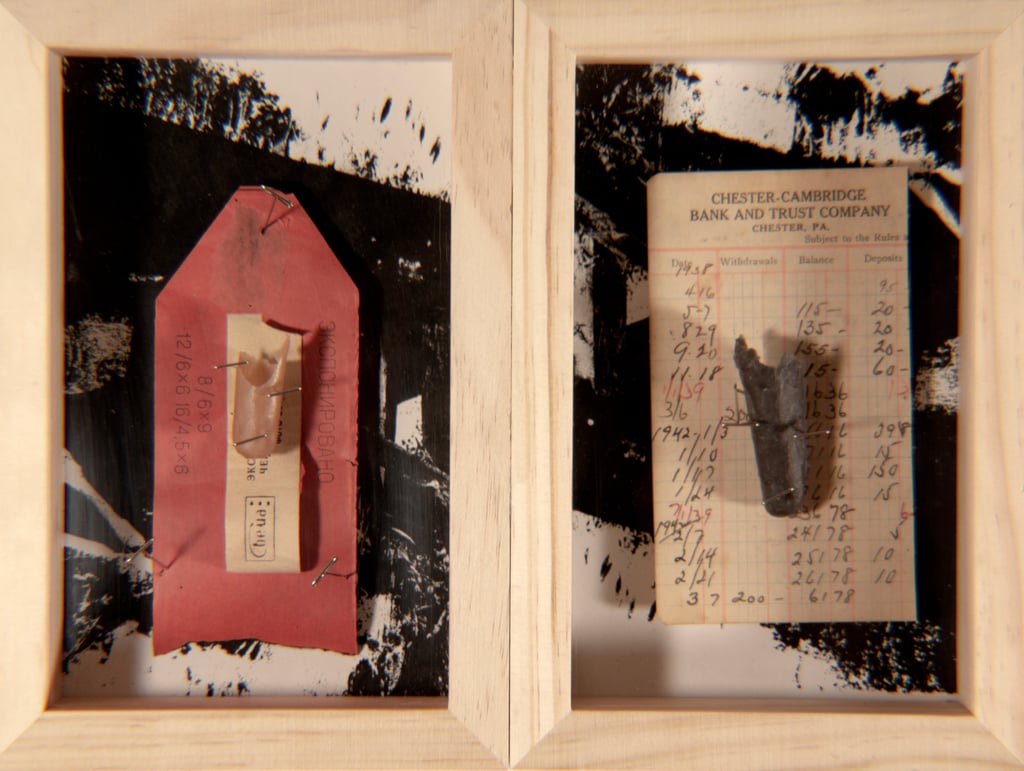 ЭКСПОНИРОВАНО
8/6×9
12/6×6 16/4,5×6
Свема
CHESTER-CAMBRIDGE
BANK AND TRUST COMPANY
CHESTER, PA.
Subject to the Rules
Date Withdrawals Balance Deposits
1938
4-16 95
5-7 115- 20
8 29 135- 20
9-20 155- 20-
11-18 15- 60-
3/6 1636
1942-1/3
1/10 15
1/17 150
1/24 1616 15
2/7 24178
2/14 25178 10
2/21 26178 10
3 7 200- 6178